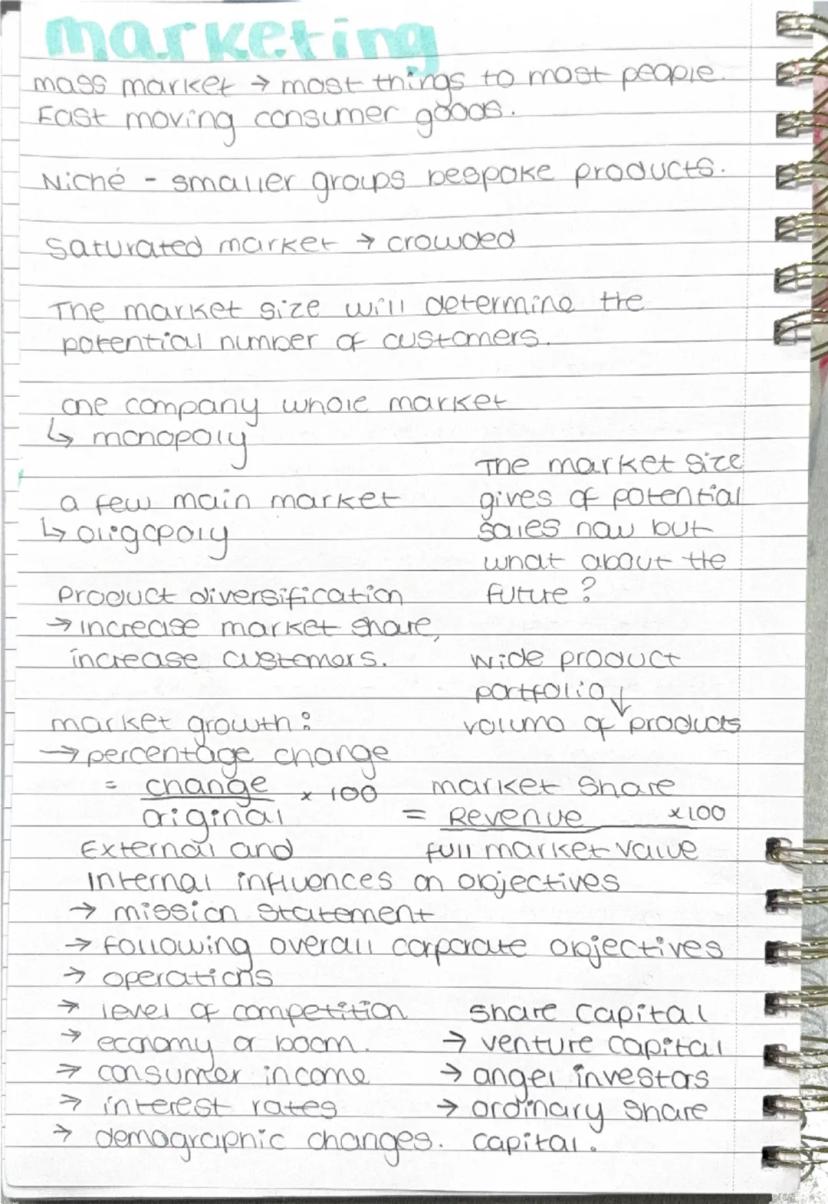 marketing
mass market → most things to most people.
Fast moving consumer goods.
Niché - smaller groups bespoke products.
Saturated market → crowded
The market size will determine the
potential number of customers.
one company whole market
↳ monopoly
a few main market
↳ oligopoly
The market size
gives of potential
sales now but
what about the
future?
Product diversification
→ increase market share,
increase customers.
wide product
portfolio ↓
volume of products
market growth:
→ percentage change
= change × 100
original
market share
= Revenue ×100
full market value
External and
Internal influences on objectives
→ mission statement
→ following overall corporate objectives
→ operations
→ level of competition
→ economy or boom.
→ consumer income
→ interest rates
→ demographic changes.
share capital
→ venture capital
→ angel investors
→ ordinary share
capital.